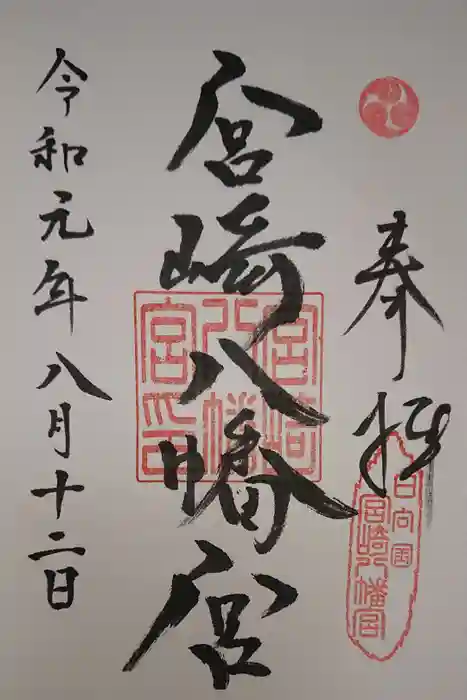 奉拝
日向国
宮崎八幡宮
宮崎八幡宮
宮崎
八幡
宮印
令和元年八月十二日